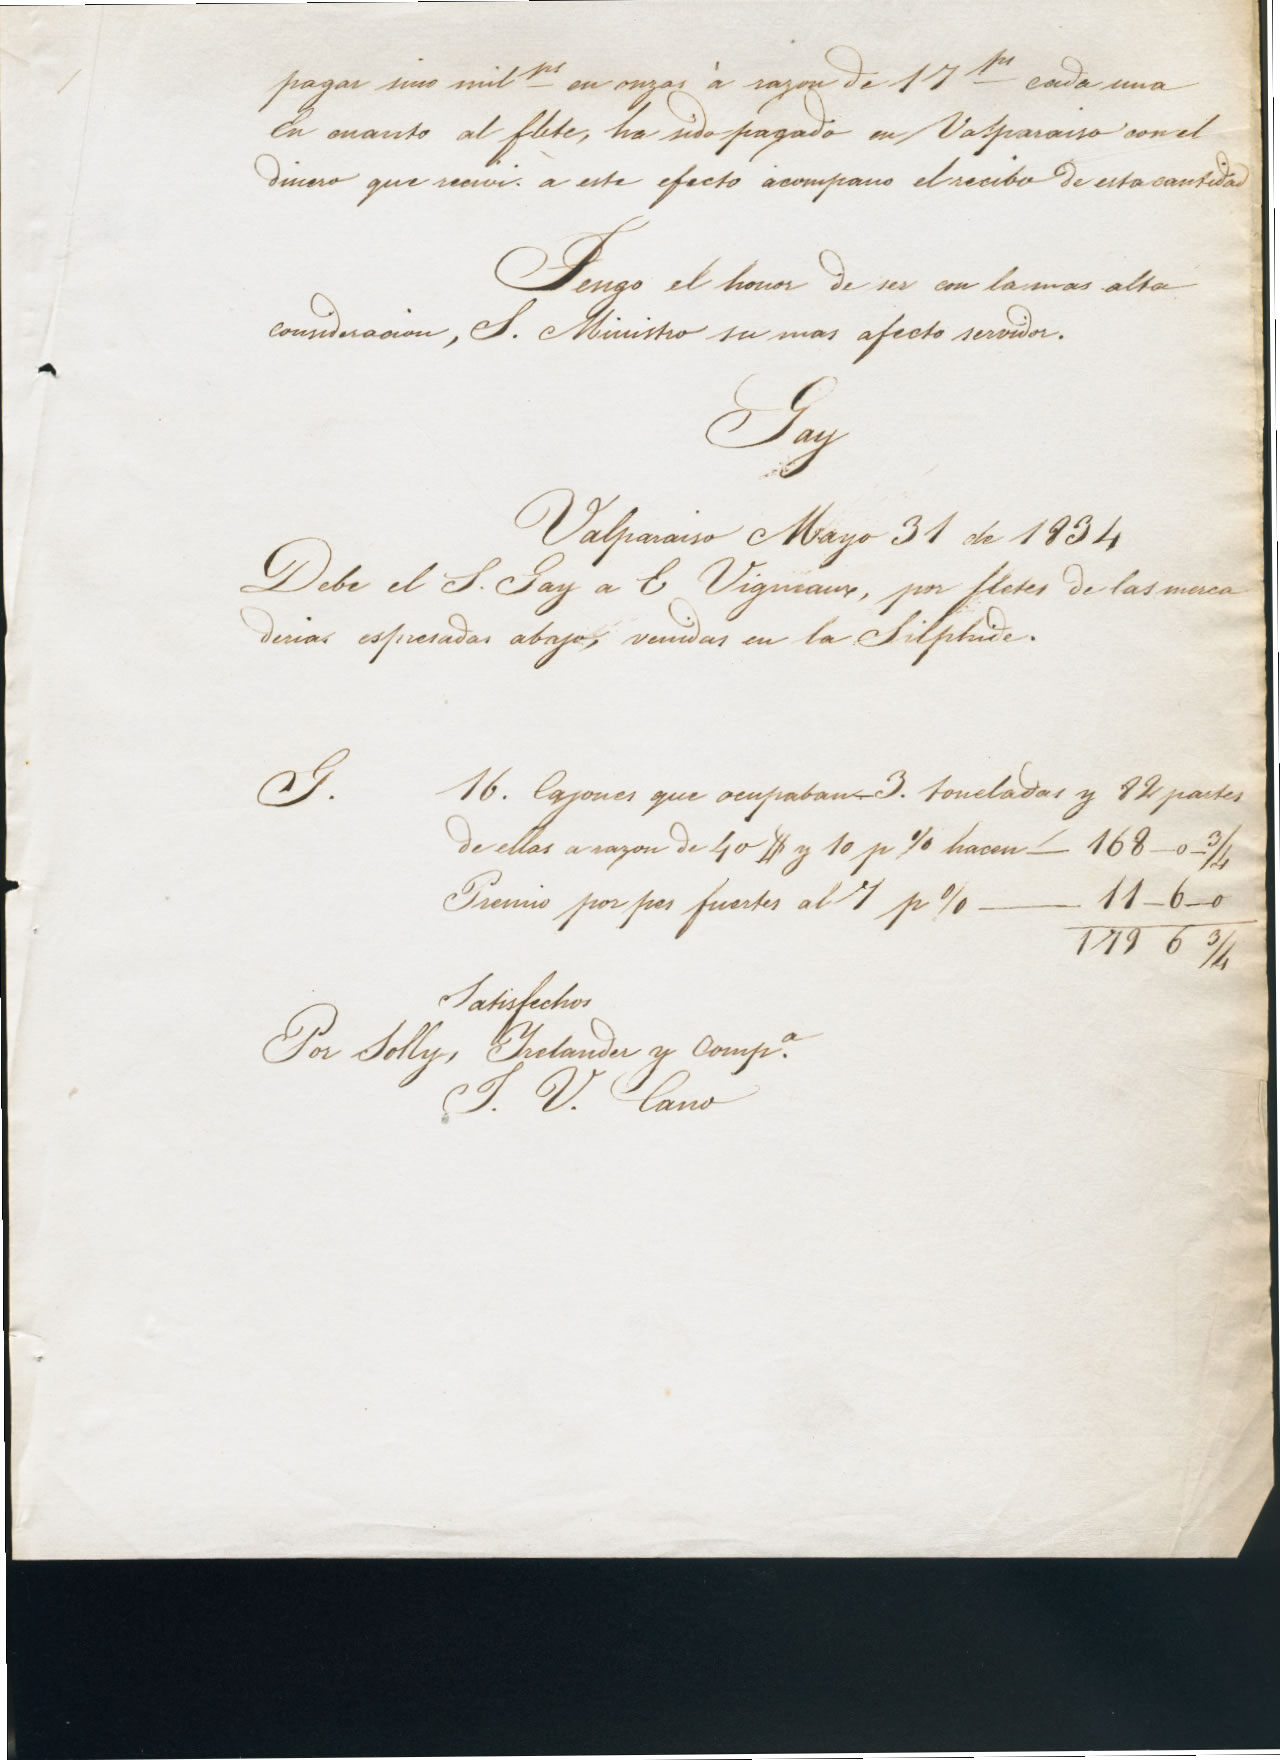 pagar sino mil ps en onzas à razon de 17 ps cada una
En cuanto al flete, ha sido pagado en Valparaiso con el
dinero que recivi. à este efecto acompano el recibo de esta cantidad
Tengo el honor de ser con la mas alta
consideracion, S. Ministro su mas afecto servidor.
Gay
Valparaiso Mayo 31 de 1834
Debe el S. Gay a E Vigneaux, por fletes de las merca
derias espresadas abajo, venidas en la Silphide.
G. 16. Cajones que ocupaban 3. toneladas y 82 partes
de ellas a razon de 40 $ y 10 p % hacen — 168-0-3/4
Premio por pes fuertes al 7 p % — 11-6-0
179 6 3/4
Satisfechos
Por Solly, Irelander y Comp.a
J. V. Cano